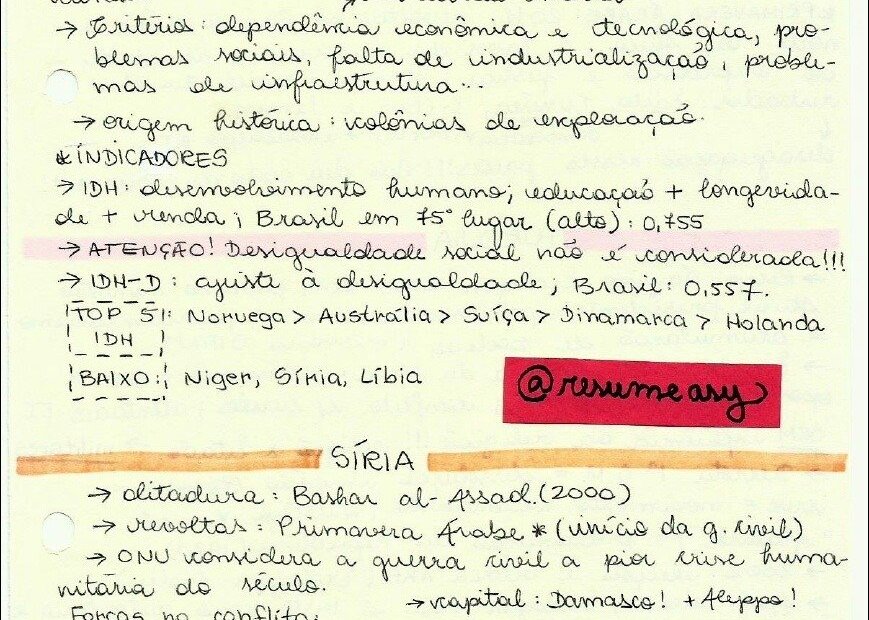 → Critérios: dependência econômica e tecnológica, pro-
blemas sociais, falta de industrialização, proble-
mas de infraestrutura...
→ origem histórica: colônias de exploração.
* INDICADORES
→ IDH: desenvolvimento humano; educação + longevida-
de + renda; Brasil em 75° lugar (alto): 0,755
→ ATENÇÃO! Desigualdade social não é considerada!!!
→ IDH-D: ajuste à desigualdade; Brasil: 0,557.
TOP 5: Noruega > Austrália > Suíça > Dinamarca > Holanda
IDH
BAIXO: Niger, Síria, Líbia
@resumeasy
SÍRIA
→ ditadura: Bashar al-Assad. (2000)
→ revoltas: Primavera Árabe * (início da g. civil)
→ ONU considera a guerra civil a pior crise huma-
nitária do século.
→ capital: Damasco! + Aleppo!
Forças no conflito: